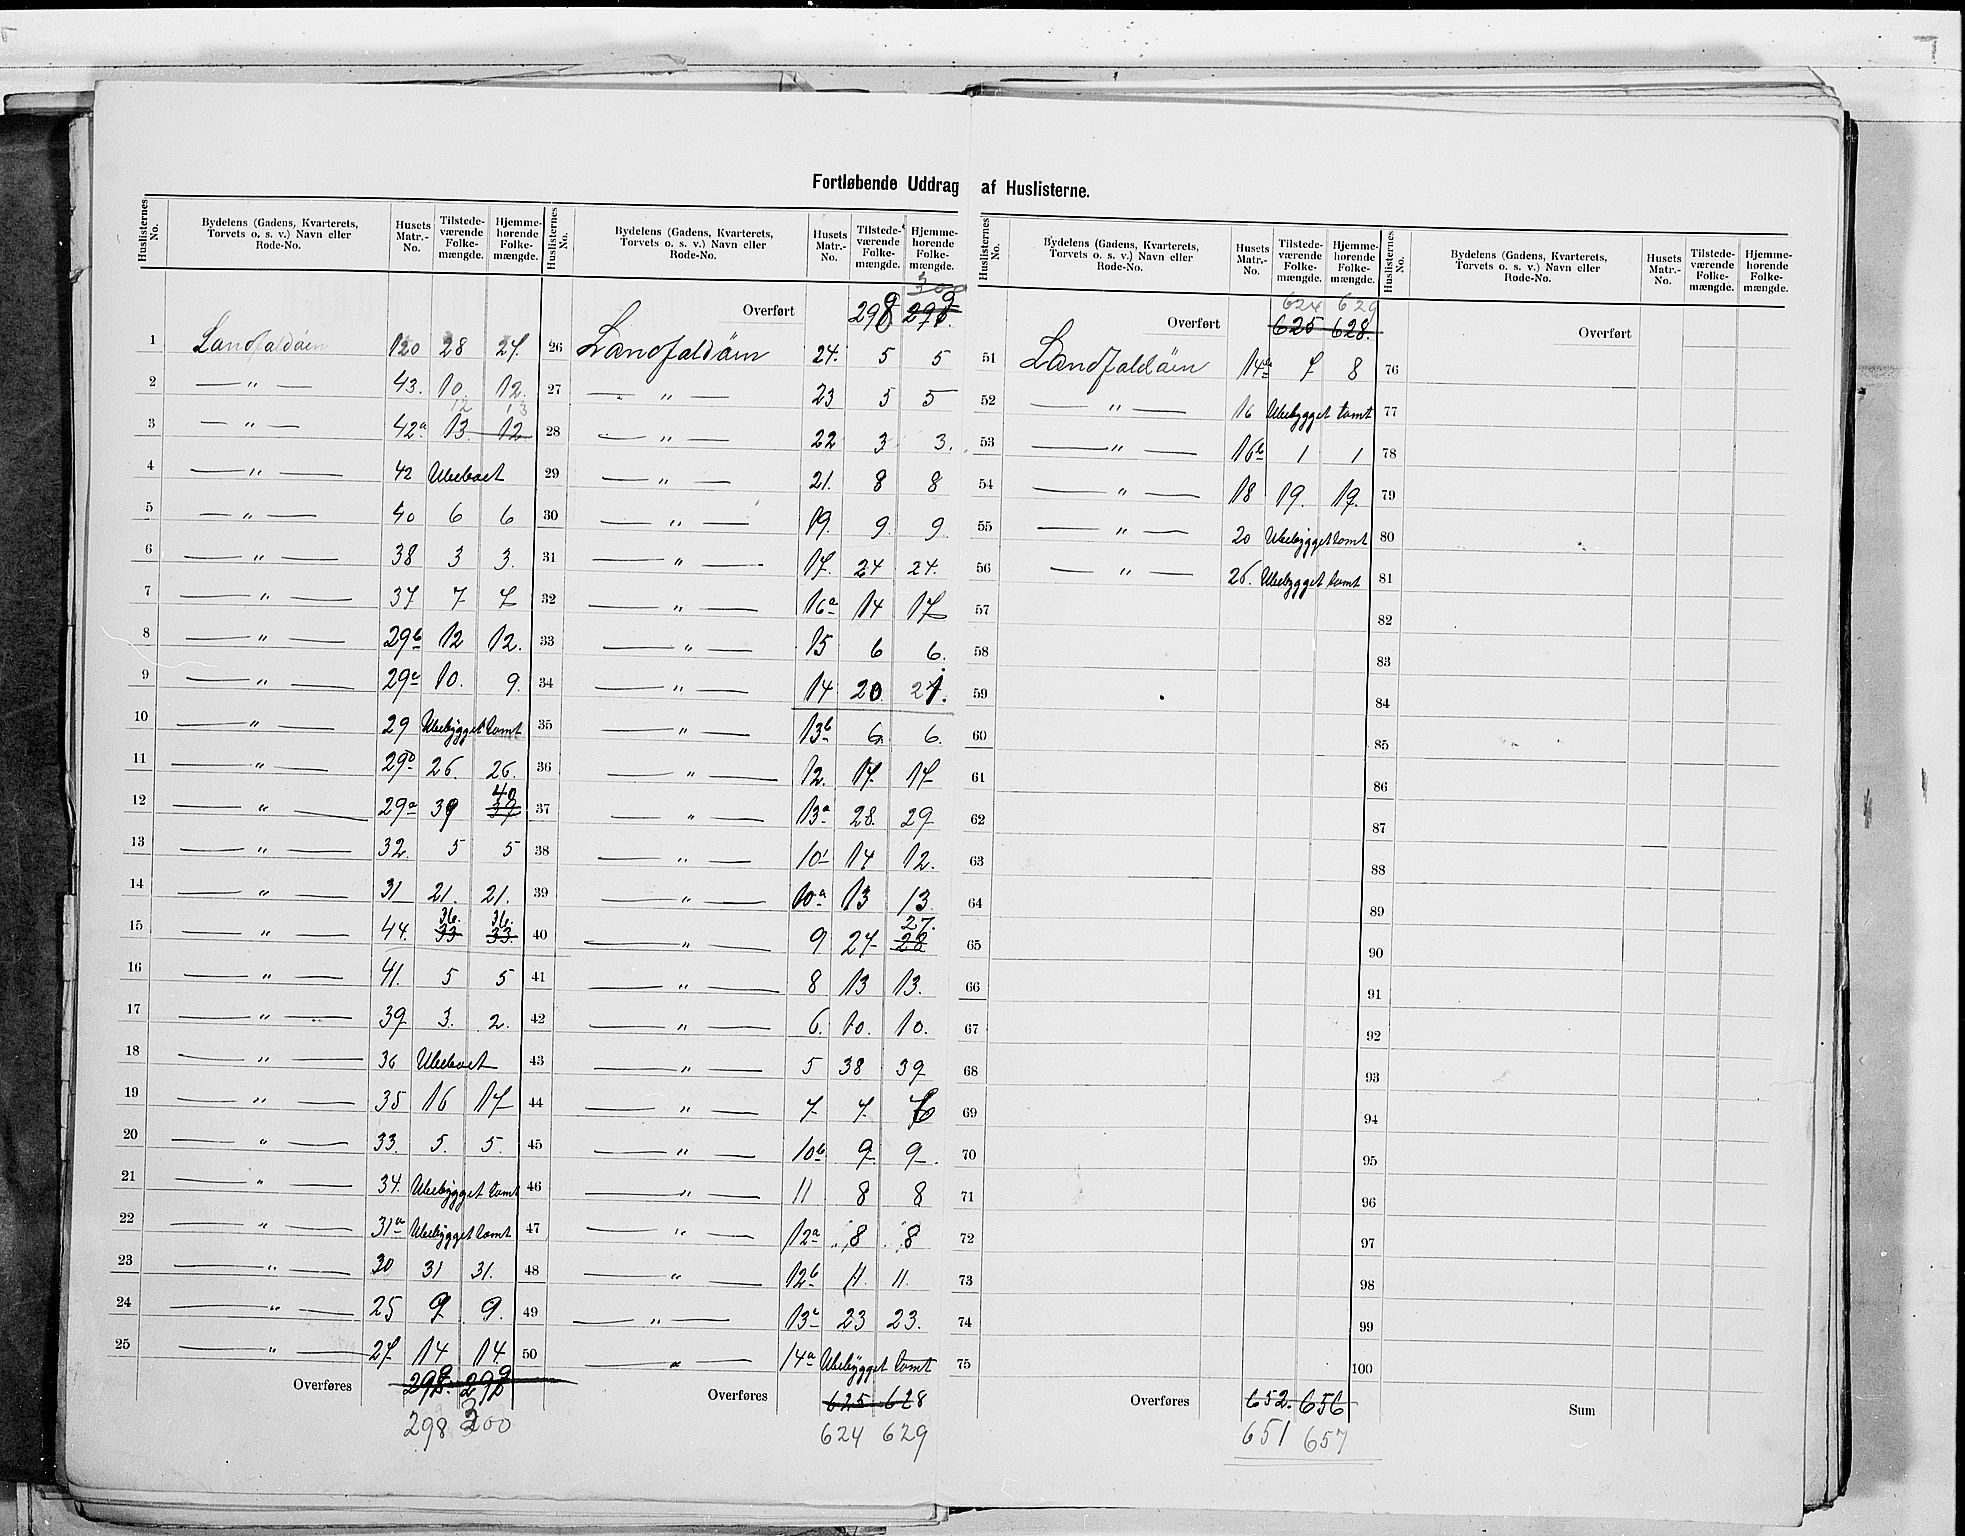 Fortløbende Uddrag af Huslisterne.
Huslisternes No. | Bydelens (Gadens, Kvarterets, Torvets o. s. v.) Navn eller Rode-No. | Husets Matr.-No. | Tilstedeværende Folkemængde. | Hjemmehørende Folkemængde.
1 Landfaldöen 120 28 27.
2 — " — 43. 10. 12.
12 13
3 — " — 42a 13. 12
4 — " — 42 Ubeboet
5 — " — 40 6 6
6 — " — 38 3 3.
7 — " — 37 7 7
8 — " — 29b 12 12.
9 — " — 29c 10. 9.
10 — " — 29 Ubebygget tomt
11 — " — 29d 26. 26.
40
12 — " — 29a 39 37
13 — " — 32. 5 5
14 — " — 31 21. 21.
36. 36.
15 — " — 44. 33 33.
16 — " — 41. 5 5
17 — " — 39 3. 2.
18 — " — 36 Ubeboet
19 — " — 35 16 17
20 — " — 33. 5. 5.
21 — " — 34. Ubebygget tomt
22 — " — 31a Ubebygget tomt
23 — " — 30 31 31.
24 — " — 25 9 9.
25 — " — 27 14 14.
Overføres 299. 299
298 300
Huslisternes No. | Bydelens (Gadens, Kvarterets, Torvets o. s. v.) Navn eller Rode-No. | Husets Matr.-No. | Tilstedeværende Folkemængde. | Hjemmehørende Folkemængde.
300
Overført 298 299.
26 Landfaldöen 24. 5 5
27 — " — 23 5 5
28 — " — 22 3 3.
29 — " — 21. 8 8
30 — " — 19. 9. 9.
31 — " — 17. 24 24.
32 — " — 16a 14 17
33 — " — 15 6 6.
34 — " — 14 20 21.
35 — " — 13b 6. 6.
36 — " — 12. 17. 17
37 — " — 13a 28. 29
38 — " — 10 14 12.
39 — " — 10a 13 13.
27.
40 — " — 9 27 28
41 — " — 8 13 13.
42 — " — 6. 10. 10.
43 — " — 5 38 39
44 — " — 7 7. 6
45 — " — 10b 9. 9.
46 — " — 11 8 8
47 — " — 12a 8 8
48 — " — 12b 11. 11.
49 — " — 13c 23 23.
50 — " — 14a Ubebygget tomt
Overføres 625 628
624 629
Huslisternes No. | Bydelens (Gadens, Kvarterets, Torvets o. s. v.) Navn eller Rode-No. | Husets Matr.-No. | Tilstedeværende Folkemængde. | Hjemmehørende Folkemængde.
624 629
Overført 625 628.
51 Landfaldöen 14b 7 8
52 — " — 16 Ubebygget tomt
53 — " — 16b 1 1
54 — " — 18 19. 19.
55 — " — 20 Ubebygget tomt
56 — " — 26. Ubebygget tomt
57
58
59
60
61
62
63
64
65
66
67
68
69
70
71
72
73
74
75
Overføres 652. 656
651 657
Huslisternes No. | Bydelens (Gadens, Kvarterets, Torvets o. s. v.) Navn eller Rode-No. | Husets Matr.-No. | Tilstedeværende Folkemængde. | Hjemmehørende Folkemængde.
Overført
76
77
78
79
80
81
82
83
84
85
86
87
88
89
90
91
92
93
94
95
96
97
98
99
100
Sum